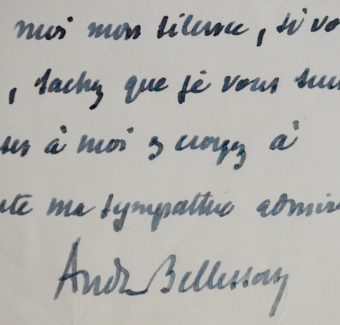 moi mon silence, si vo
, sachez que je vous sui
ses à moi & croyez à
ute ma sympathie admira
André Bellessort